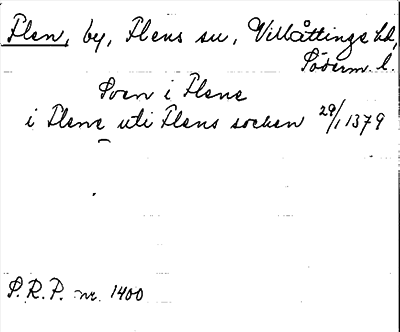 Flen, by, Flens sn, Villåttinge hd,
Söderm. l.
Sven i Flene
i Flene uti Flens socken 29/1 1379
S.R.P. nr. 1400